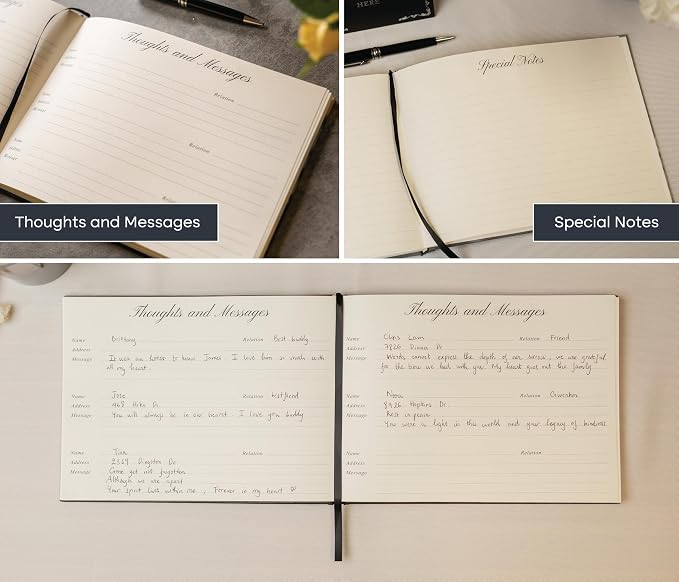 Thoughts and Messages
Relation
Relation
HERE
Special Notes
Thoughts and Messages
Special Notes
Thoughts and Messages
Name Brittany Relation Best buddy
Address
Message It was an honor to know James I love him so much with
all my heart.
Name Jose Relation
Address 468 Hike Dr.
Message You will always be in our heart. I love you buddy
Name Relation
Address 2369 Dr
Message Gone yet not forgotten
Although we are apart
Your spirit lives within me, Forever in my heart ♡
Thoughts and Messages
Name Chris Relation Friend
Address 3826 Dr
Message Words cannot express the depth of our sorrow, we are grateful
for the time we had with you. My heart goes out the family.
Name Relation Coworker
Address 8326 Hopkins Dr.
Message Rest in peace
You were a light in this world and your legacy of kindness
Name Relation
Address
Message